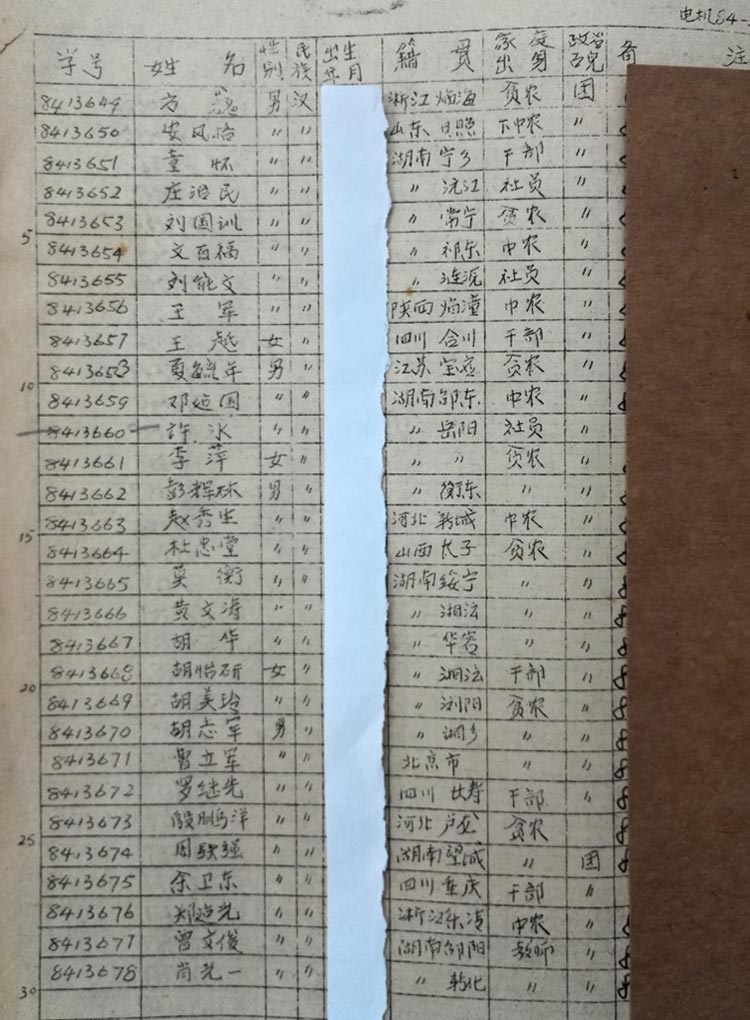 电机84-
学号 姓名 性别 民族 出生年月 籍贯 家庭出身 政治面貌 备注
8413649 方巍 男 汉 浙江临海 贫农 团
8413650 安风格 〃 〃 山东日照 下中农 〃
8413651 童怀 〃 〃 湖南宁乡 干部 〃
8413652 庄治民 〃 〃 〃 沅江 社员 〃
5 8413653 刘国训 〃 〃 〃 常宁 贫农 〃
8413654 文百福 〃 〃 〃 祁东 中农 〃
8413655 刘能文 〃 〃 〃 涟源 社员 〃
8413656 王军 〃 〃 陕西临潼 中农 〃
8413657 王越 女 〃 四川合川 干部 〃
10 8413658 夏毓年 男 〃 江苏宝应 贫农 〃
8413659 邓 国 〃 〃 湖南邵东 中农 〃
8413660 许冰 〃 〃 〃 岳阳 社员 〃
8413661 李萍 女 〃 〃 〃 贫农 〃
8413662 彭辉 男 〃 〃 衡东 〃 〃
15 8413663 赵秀生 〃 〃 河北 城 中农 〃
8413664 杜忠堂 〃 〃 山西长子 贫农 〃
8413665 莫衡 〃 〃 湖南绥宁 〃 〃
8413666 黄文涛 〃 〃 〃 〃 〃
8413667 胡华 〃 〃 〃 华容 〃 〃
20 8413668 胡怡研 女 〃 〃 干部 〃
8413669 胡美玲 〃 〃 〃 浏阳 贫农 〃
8413670 胡志军 男 〃 〃 湘乡 〃 〃
8413671 曾立军 〃 〃 北京市 〃 〃
8413672 罗继先 〃 〃 四川长寿 干部 〃
25 8413673 殷鹏洋 〃 〃 河北卢龙 贫农
8413674 周 强 〃 〃 湖南望城 〃 团
8413675 余卫东 〃 〃 四川重庆 干部 〃
8413676 郑 光 〃 〃 浙江东 中农 〃
8413677 曾文俊 〃 〃 湖南邵阳 教师 〃
30 8413678 肖光一 〃 〃 〃 〃 〃